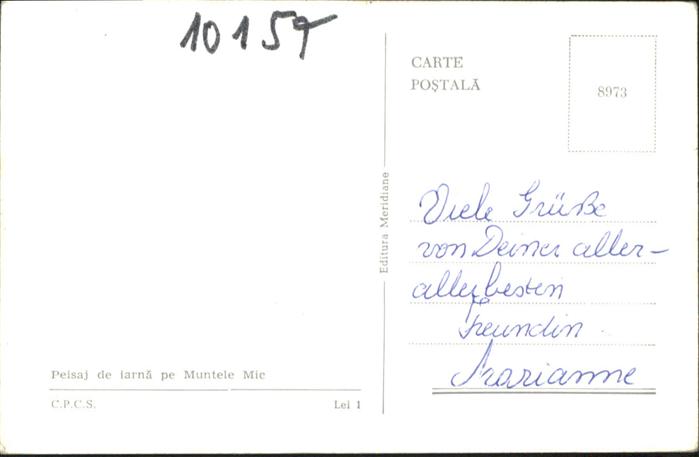 10157
CARTE
POȘTALĂ
8973
Editura Meridiane
Viele Grüße
von Deiner aller-
allerbesten
Freundin
Marianne
Peisaj de iarnă pe Muntele Mic
C.P.C.S.
Lei 1